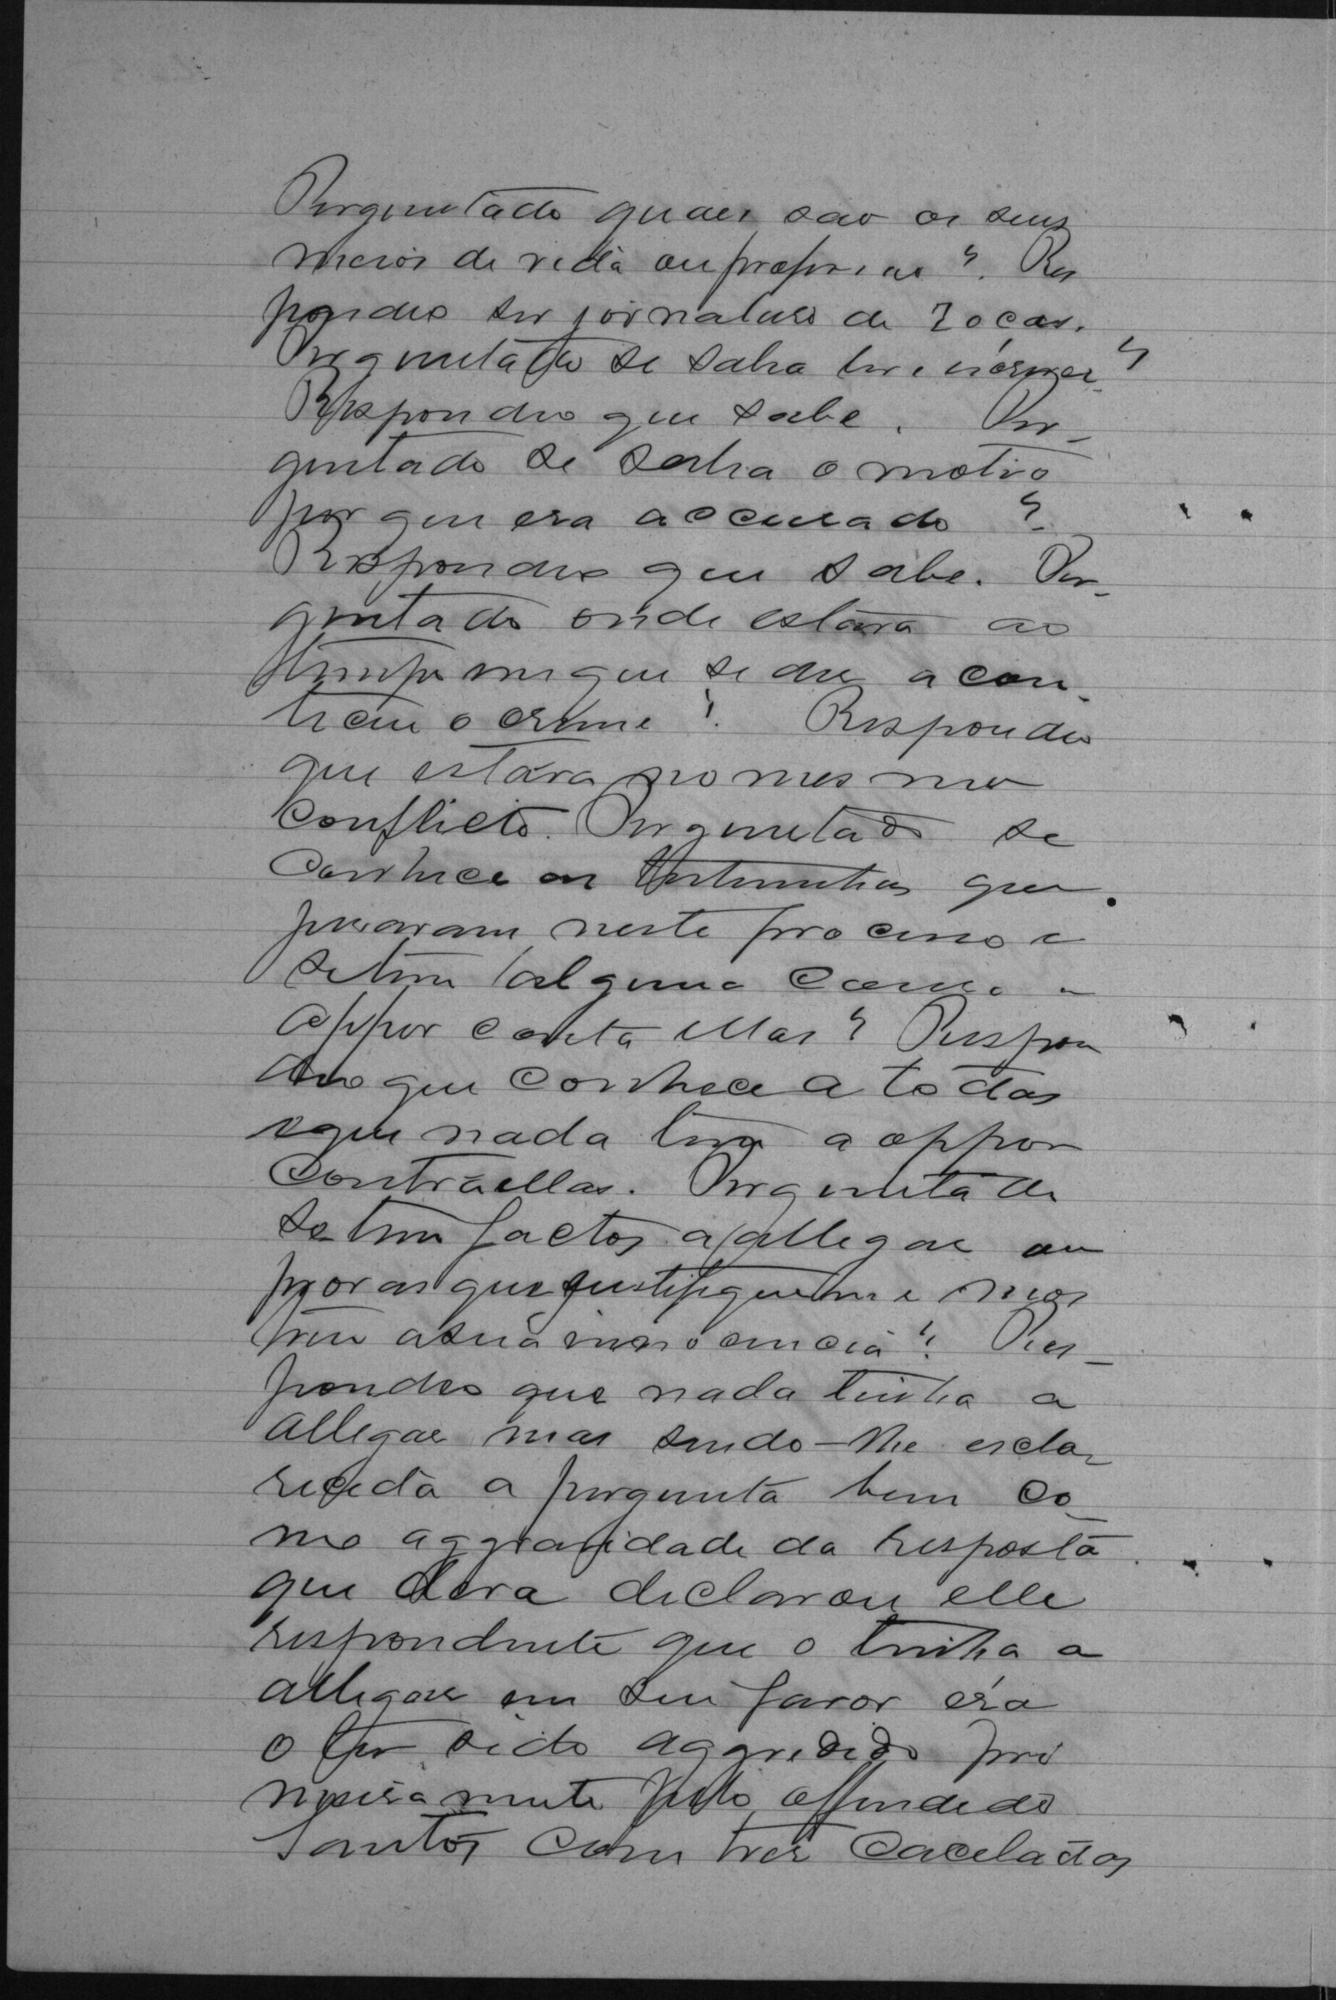 Perguntado quaes são os seus
meios de vida ou profissão? Res
pondeo ser jornaleiro de
Perguntado se sabia ler e escrever?
Respondeo que sabe. Per-
guntado se sabia o motivo
por que era accusado?
Respondeo que sabe. Per-
guntado onde estava ao
tempo em que se diz acon-
teceu o crime? Respondeo
que estava no mesmo
conflicto. Perguntado se
conhece as testemunhas que
juraram neste processo e
se tem alguma cousa a
oppor contra ellas? Respon
deo que conhece a todas
e que nada tem a oppor
contra ellas. Perguntado
se tem factos a allegar ou
provas que justifiquem e mos
trem a sua innocencia? Res-
pondeo que nada tinha a
allegar mas sendo-lhe escla-
recida a pergunta bem co-
mo a gravidade da resposta
que dera declarou elle
respondente que o tinha a
allegar em seu favor era
o ter sido aggredido pri
meiramente pelo offendido
Santos com tres cacetadas